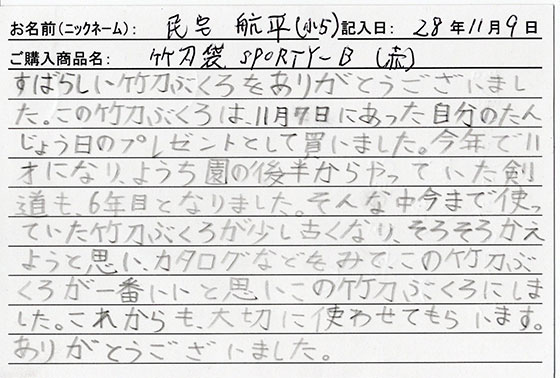 お名前(ニックネーム): 民宅 航平(小5) 記入日: 28年11月9日
ご購入商品名: 竹刀袋 SPORTY-B (赤)
すばらしい竹刀ぶくろをありがとうございまし
た。この竹刀ぶくろは、11月7日にあった自分のたん
じょう日のプレゼントとして買いました。今年で11
才になり、ようち園の後半からやっていた剣
道も、6年目となりました。そんな中今まで使っ
ていた竹刀ぶくろが少し古くなり、そろそろかえ
ようと思い、カタログなどをみて、この竹刀ぶ
くろが一番いいと思いこの竹刀ぶくろにしま
した。これからも、大切に使わせてもらいます。
ありがとうございました。